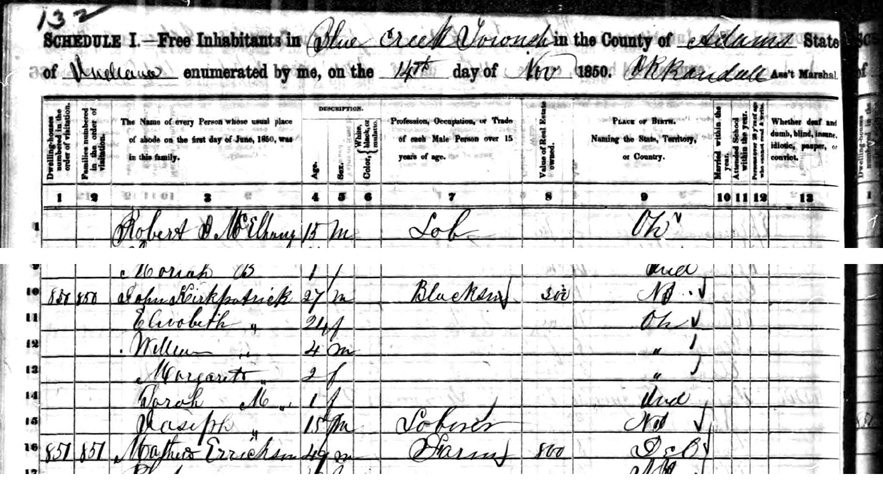 132
SCHEDULE I.—Free Inhabitants in Blue Creek Township in the County of Adams State
of Indiana enumerated by me, on the 14th day of Nov 1850. Randall Ass't Marshal.
Dwelling-houses numbered in the order of visitation.
Families numbered in the order of visitation.
The Name of every Person whose usual place of abode on the first day of June, 1850, was in this family.
DESCRIPTION.
Age.
Sex.
Color, White, black, or mulatto.
Profession, Occupation, or Trade of each Male Person over 15 years of age.
Value of Real Estate owned.
PLACE OF BIRTH. Naming the State, Territory, or Country.
Married within the year.
Attended School within the year.
Whether deaf and dumb, blind, insane, idiotic, pauper, or convict.
1 2 3 4 5 6 7 8 9 10 11 12 13
1 Robert 15 m Lab Oh
9 Moriah B 1 f Ind
10 850 John Kirkpatrick 27 m Blacksm 300
11 Elisabeth " 24 f Oh
12 William " 4 m "
13 Margarett " 2 f "
14 Sarah M " 1 f Ind
15 Joseph " 15 m
16 851 851 Errickson m Farm 800
17